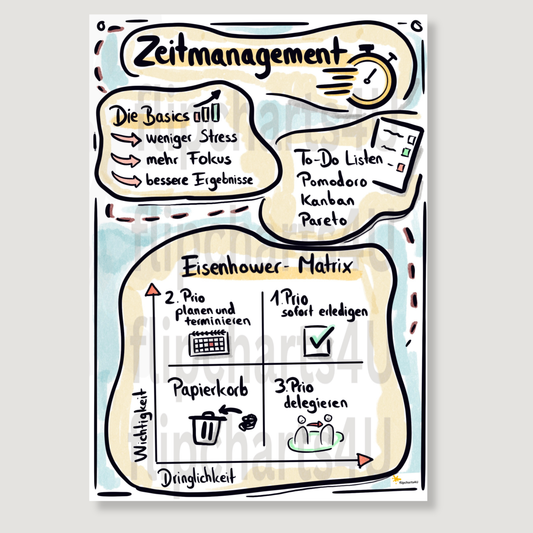 Zeitmanagement
Die Basics
weniger Stress
mehr Fokus
bessere Ergebnisse
To-Do Listen
Pomodoro
Kanban
Pareto
Eisenhower-Matrix
2. Prio
planen und
terminieren
1. Prio
sofort erledigen
Papierkorb
3. Prio
delegieren
Wichtigkeit
Dringlichkeit
flipcharts4U
flipcharts4U
flipcharts4U
flipcharts4U
flipcharts4U